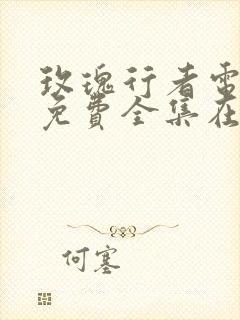 玫瑰行者電
免費全集在
何塞